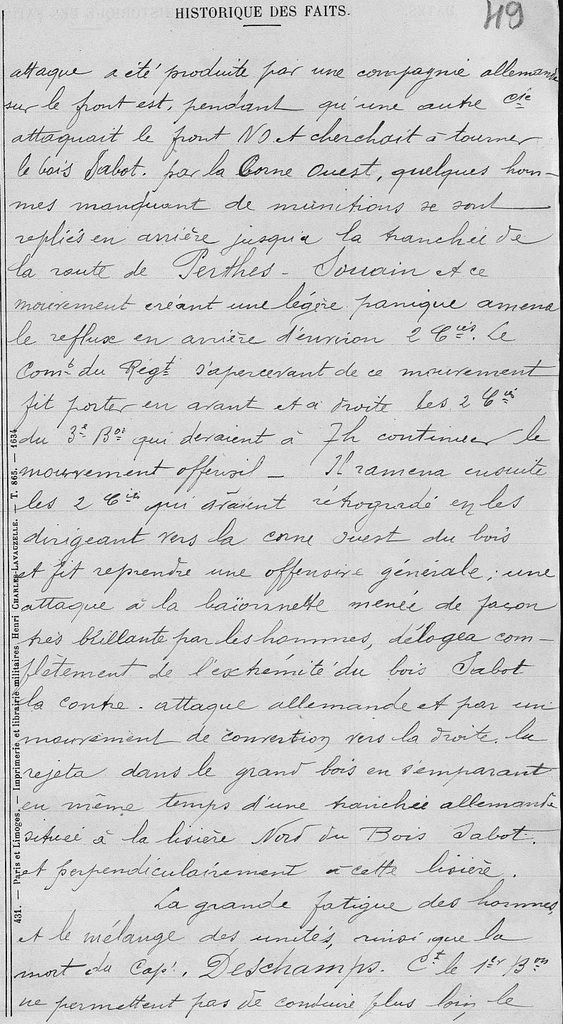 HISTORIQUE DES FAITS.
49
attaque a été produite par une compagnie allemande
sur le front est, pendant qu'une autre Cie
attaquait le front NO et cherchait à tourner
le bois Sabot. par la Corne Ouest, quelques hom-
mes manquant de munitions se sont
repliés en arrière jusqu'à la tranchée de
la route de Perthes - Souain et ce
mouvement créant une légère panique amena
le reflux en arrière d'environ 2 Cies. Le
Comt du Régt s'apercevant de ce mouvement
fit porter en avant et à droite les 2 Cies
du 3e Bon qui devaient à 7h continuer le
mouvement offensif - Il ramena ensuite
les 2 Cies qui avaient rétrogradé en les
dirigeant vers la corne ouest du bois
et fit reprendre une offensive générale; une
attaque à la baïonnette menée de façon
très brillante par les hommes, délogea com-
plètement de l'extrémité du bois Sabot
la contre-attaque allemande et par un
mouvement de convertion vers la droite, la
rejeta dans le grand bois en s'emparant
en même temps d'une tranchée allemande
située à la lisière Nord du Bois Sabot.
et perpendiculairement à cette lisière.
La grande fatigue des hommes,
et le mélange des unités, ainsi que la
mort du Cape. Deschamps. Ct le 1er Bon
ne permettent pas de conduire plus loin le
431. — Paris et Limoges. — Imprimerie et librairie militaires Henri CHARLES-LAVAUZELLE. — T. 865. — 1634